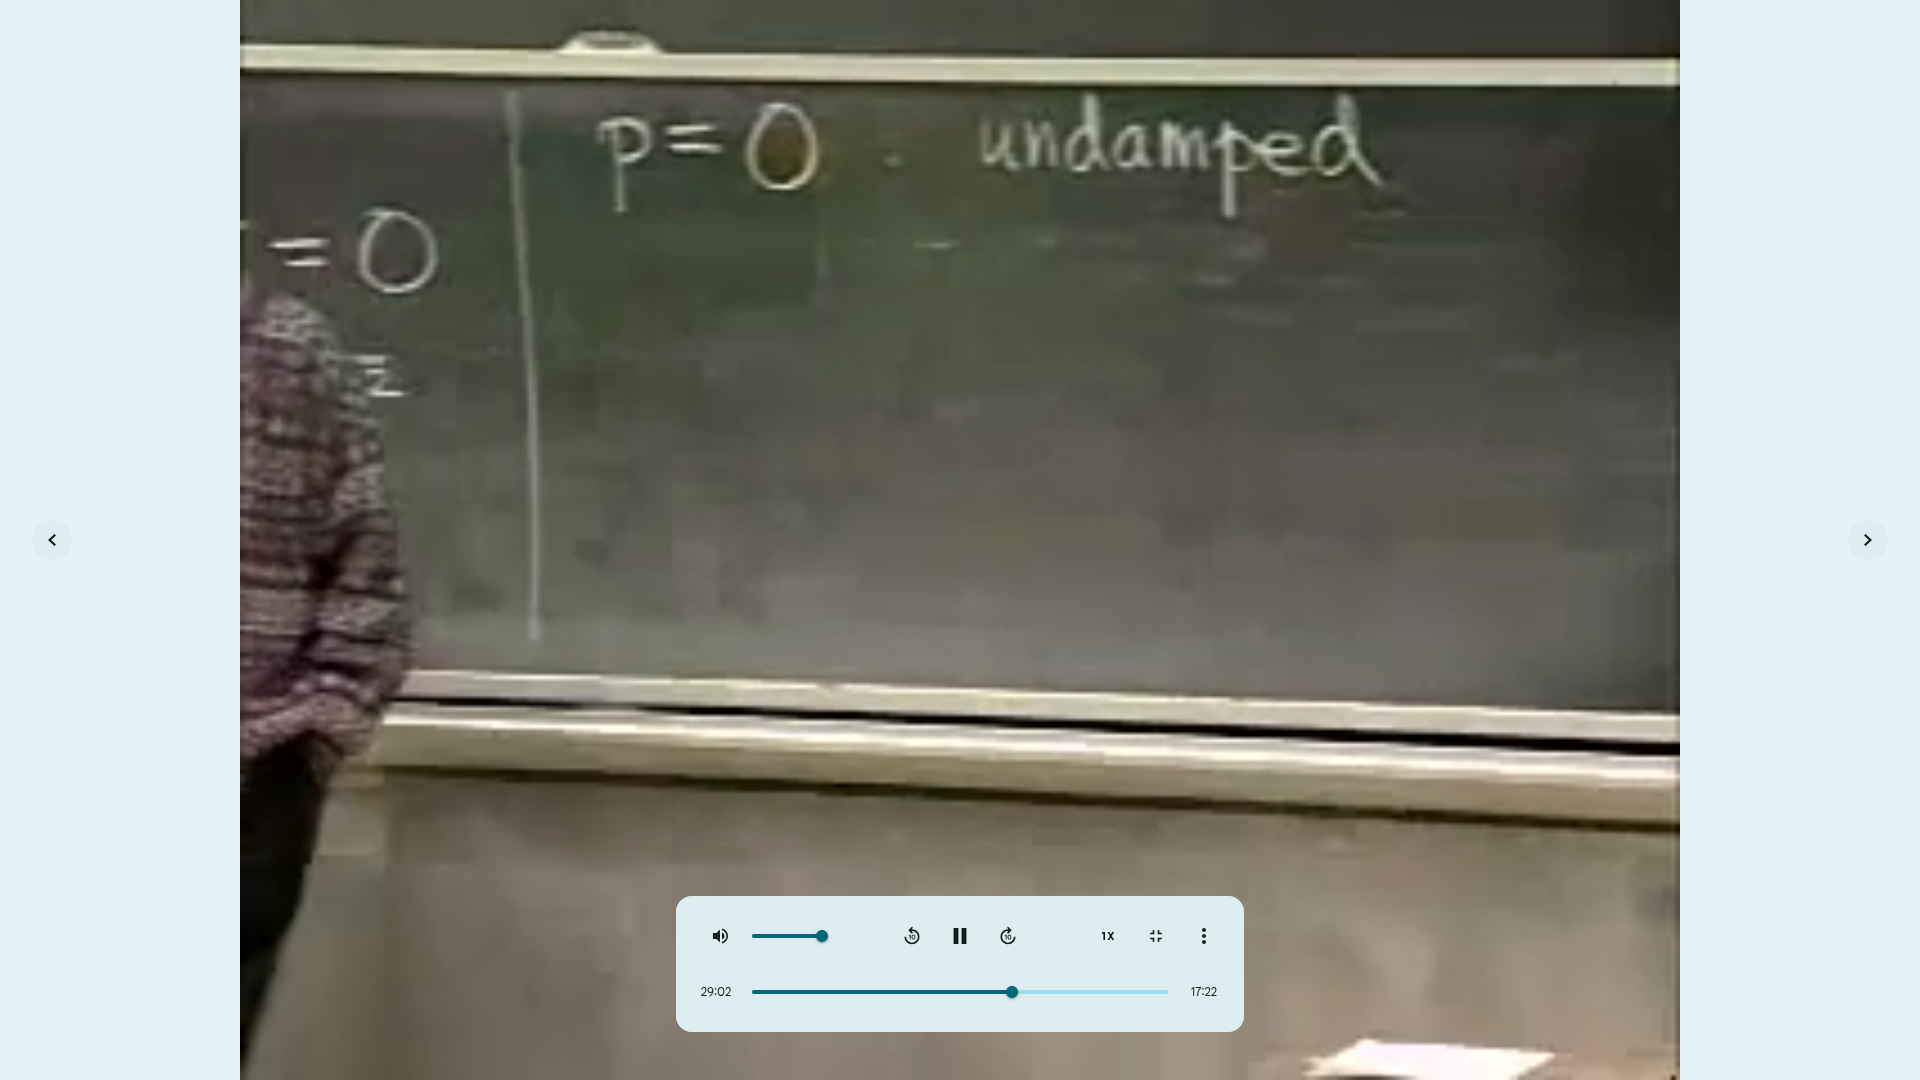 p = 0 undamped
= 0
1X
29:02 17:22